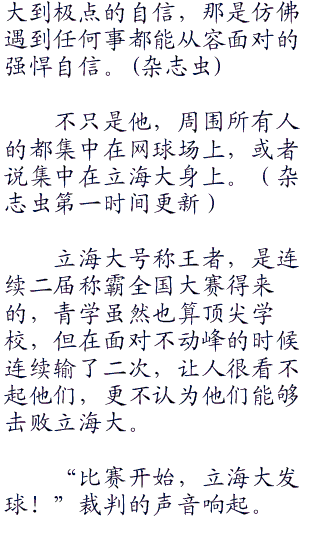 大到极点的自信，那是仿佛
遇到任何事都能从容面对的
强悍自信。(杂志虫)
不只是他，周围所有人
的都集中在网球场上，或者
说集中在立海大身上。（ 杂
志虫第一时间更新 ）
立海大号称王者，是连
续二届称霸全国大赛得来
的，青学虽然也算顶尖学
校，但在面对不动峰的时候
连续输了二次，让人很看不
起他们，更不认为他们能够
击败立海大。
“比赛开始，立海大发
球！”裁判的声音响起。